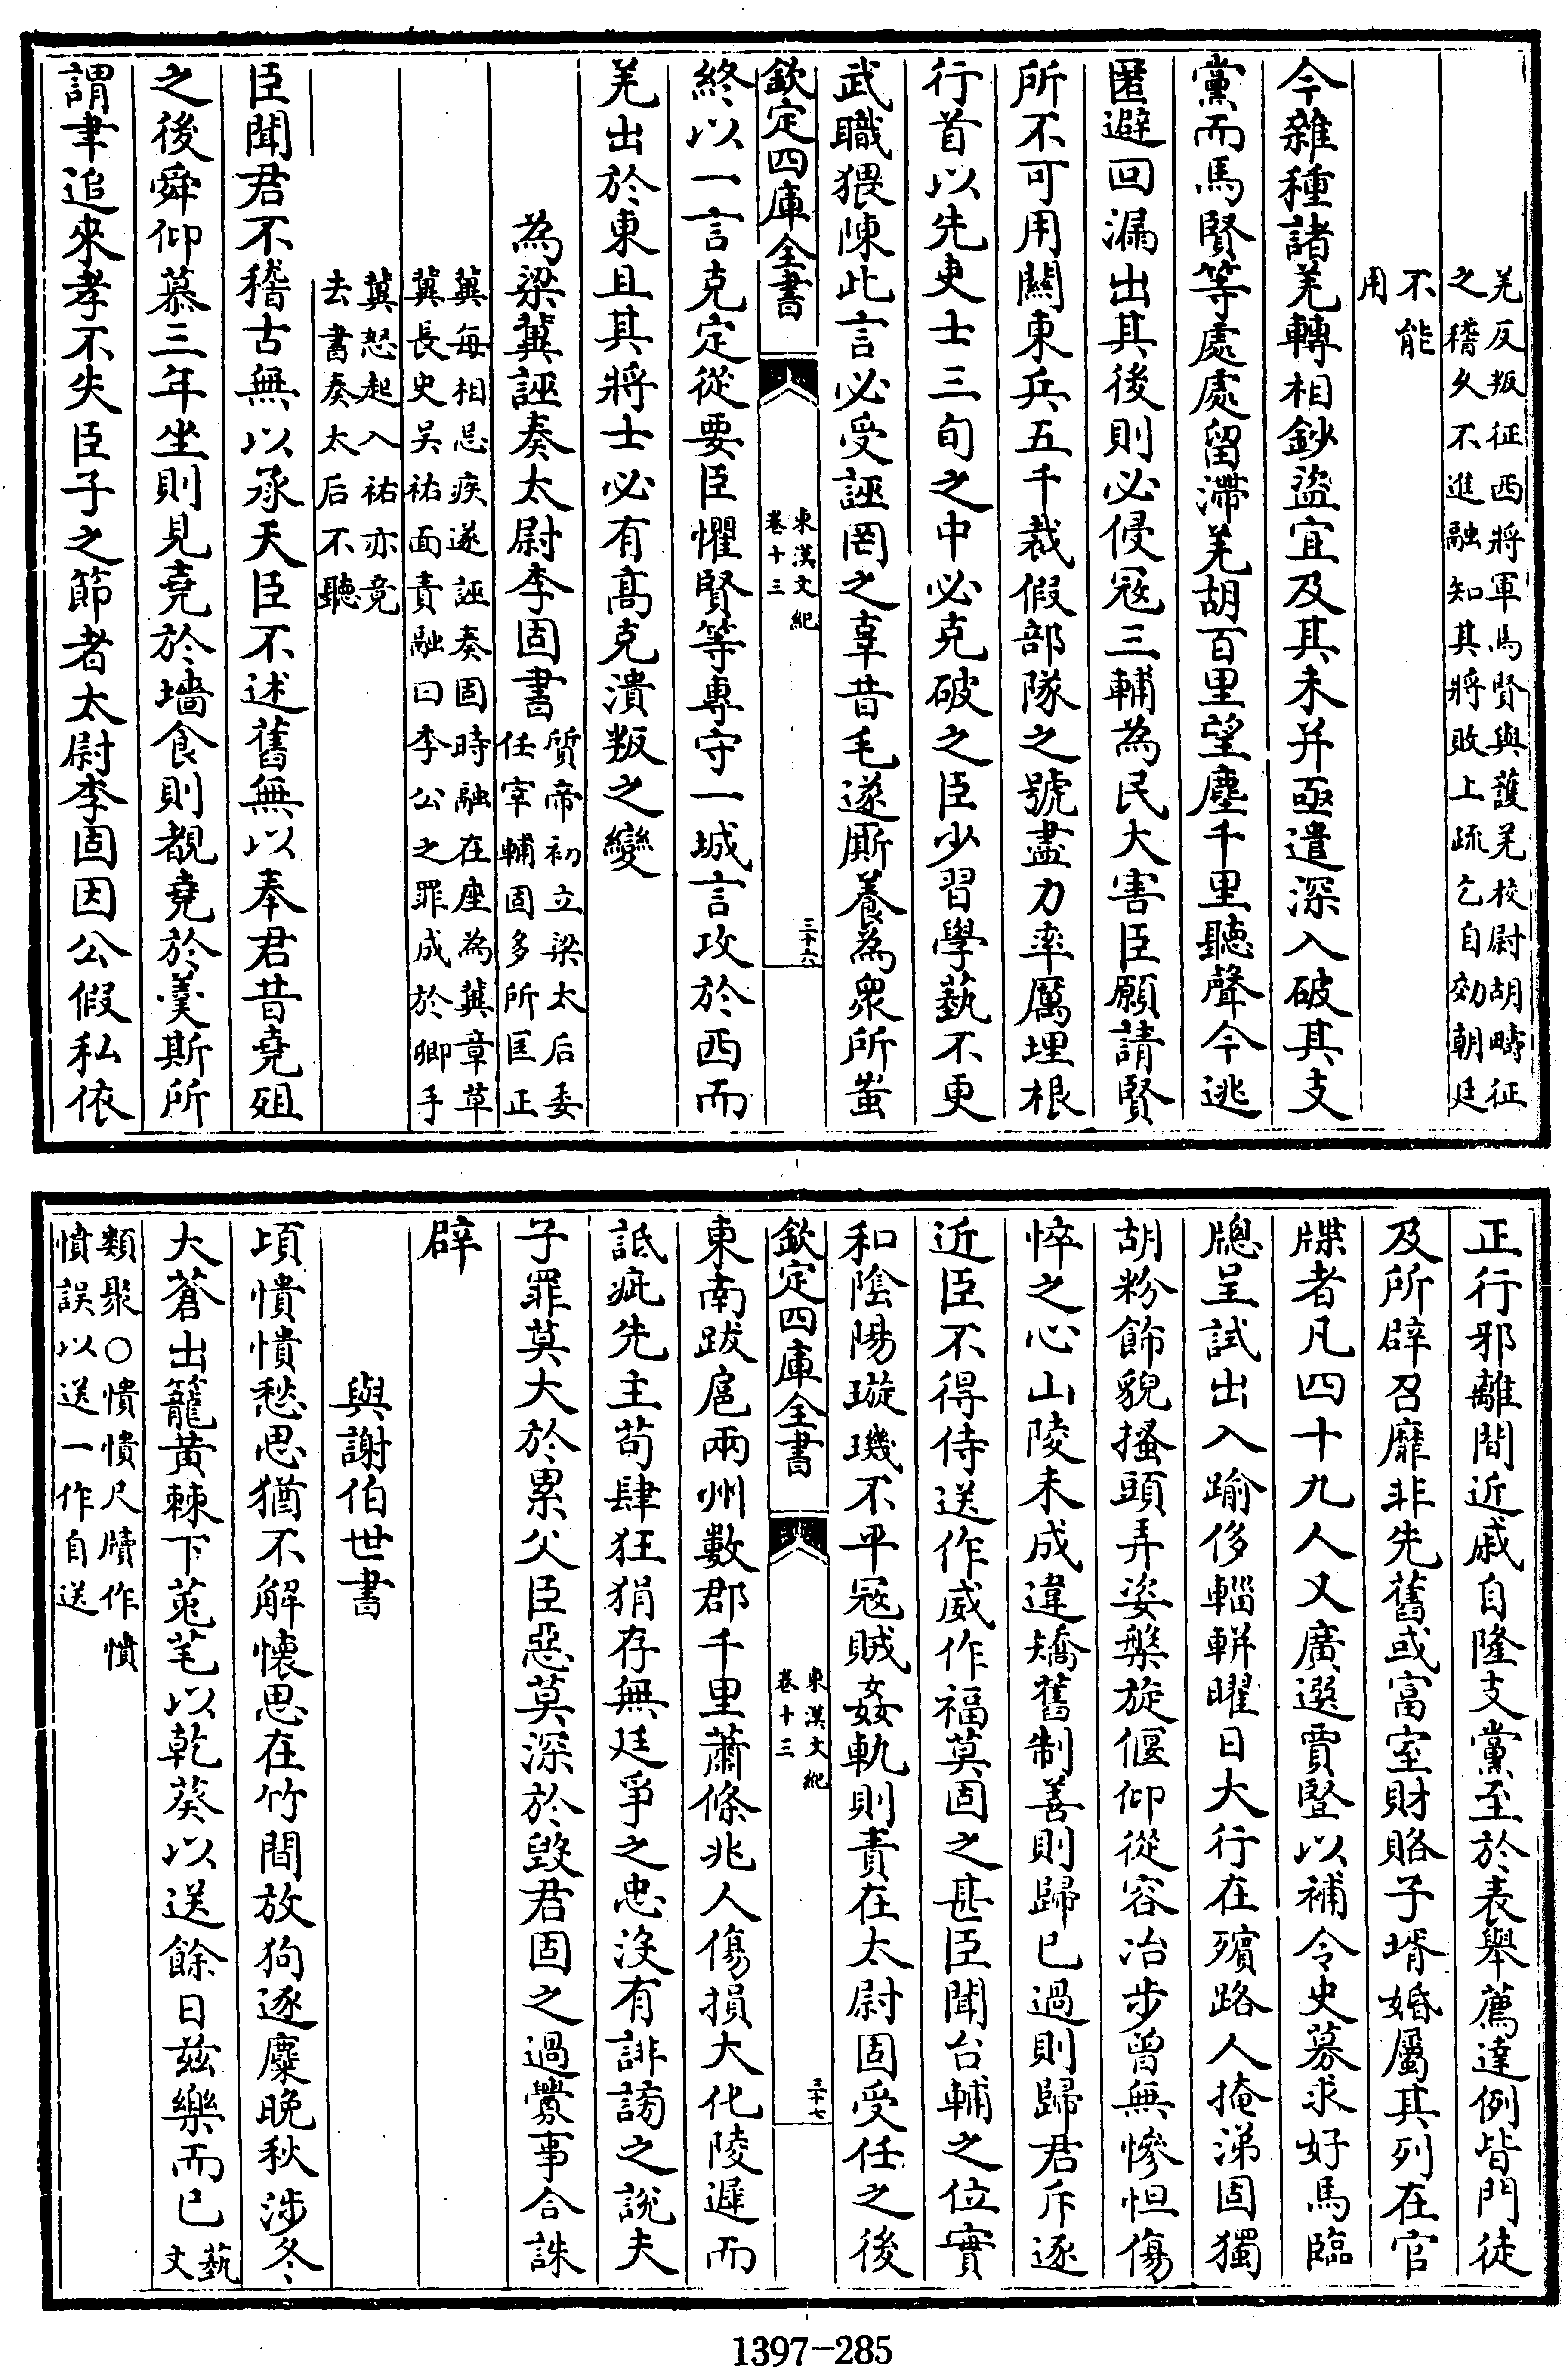 羌反叛征西將軍馬賢與護羌校尉胡疇征
之稽久不進融知其將敗上疏乞自効朝廷
不能
用
今雜種諸羌轉相鈔盜宜及其未并亟遣深入破其支
黨而馬賢等處處留滯羌胡百里望塵千里聽聲今逃
匿避回漏出其後則必侵寇三輔為民大害臣願請賢
所不可用關東兵五千裁假部隊之號盡力率厲埋根
行首以先吏士三旬之中必克破之臣少習學藝不更
武職猥陳此言必受誣罔之辜昔毛遂厮養為衆所蚩
欽定四庫全書
東漢文紀
卷十三
三十六
終以一言克定從要臣懼賢等專守一城言攻於西而
羌出於東且其將士必有高克潰叛之變
為梁冀誣奏太尉李固書
質帝初立梁太后委
任宰輔固多所匡正
冀每相忌疾遂誣奏固時融在座為冀章草
冀長史吴祐面責融曰李公之罪成於卿手
冀怒起入祐亦竟
去書奏太后不聽
臣聞君不稽古無以承天臣不述舊無以奉君昔堯殂
之後舜仰慕三年坐則見堯於墻食則覩堯於羹斯所
謂聿追來孝不失臣子之節者太尉李固因公假私依
正行邪離間近戚自隆支黨至於表舉薦達例皆門徒
及所辟召靡非先舊或富室財賂子壻婚屬其列在官
牒者凡四十九人又廣選賈豎以補令史募求好馬臨
牎呈試出入踰侈輜軿曜日大行在殯路人掩涕固獨
胡粉飾貌搔頭弄姿槃旋偃仰從容冶步曾無慘怛傷
悴之心山陵未成違矯舊制善則歸已過則歸君斥逐
近臣不得侍送作威作福莫固之甚臣聞台輔之位實
和陰陽璇璣不平寇賊姦軌則責在太尉固受任之後
欽定四庫全書
東漢文紀
卷十三
三十七
東南跋扈兩州數郡千里蕭條兆人傷損大化陵遲而
詆疵先主苟肆狂狷存無廷爭之忠沒有誹謗之說夫
子罪莫大於累父臣惡莫深於毀君固之過釁事合誅
辟
與謝伯世書
頃憒憒愁思猶不解懐思在竹間放狗逐麋晚秋涉冬
大蒼出籠黄棘下菟芼以乾葵以送餘日兹樂而已
藝
文
類聚○憒憒尺牘作憤
憤誤以送一作自送
1397-285